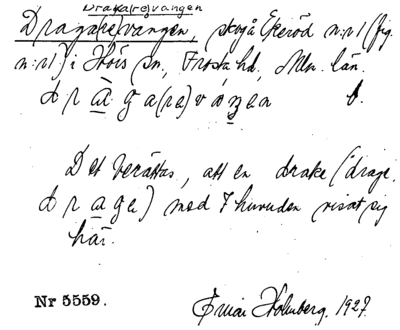 Draka(re)vangen
Draga(re)vangen, skog å Ekeröd n:r 1 (fig.
n:r 1) i Höörs sn, Frosta hd, Mlm. län.
d r a g a (re) v a ŋ e n b.
Det berättas, att en drake (drage,
d r a g e) med 7 huvuden visat sig
här.
Nr 5559. Holmberg. 1927.